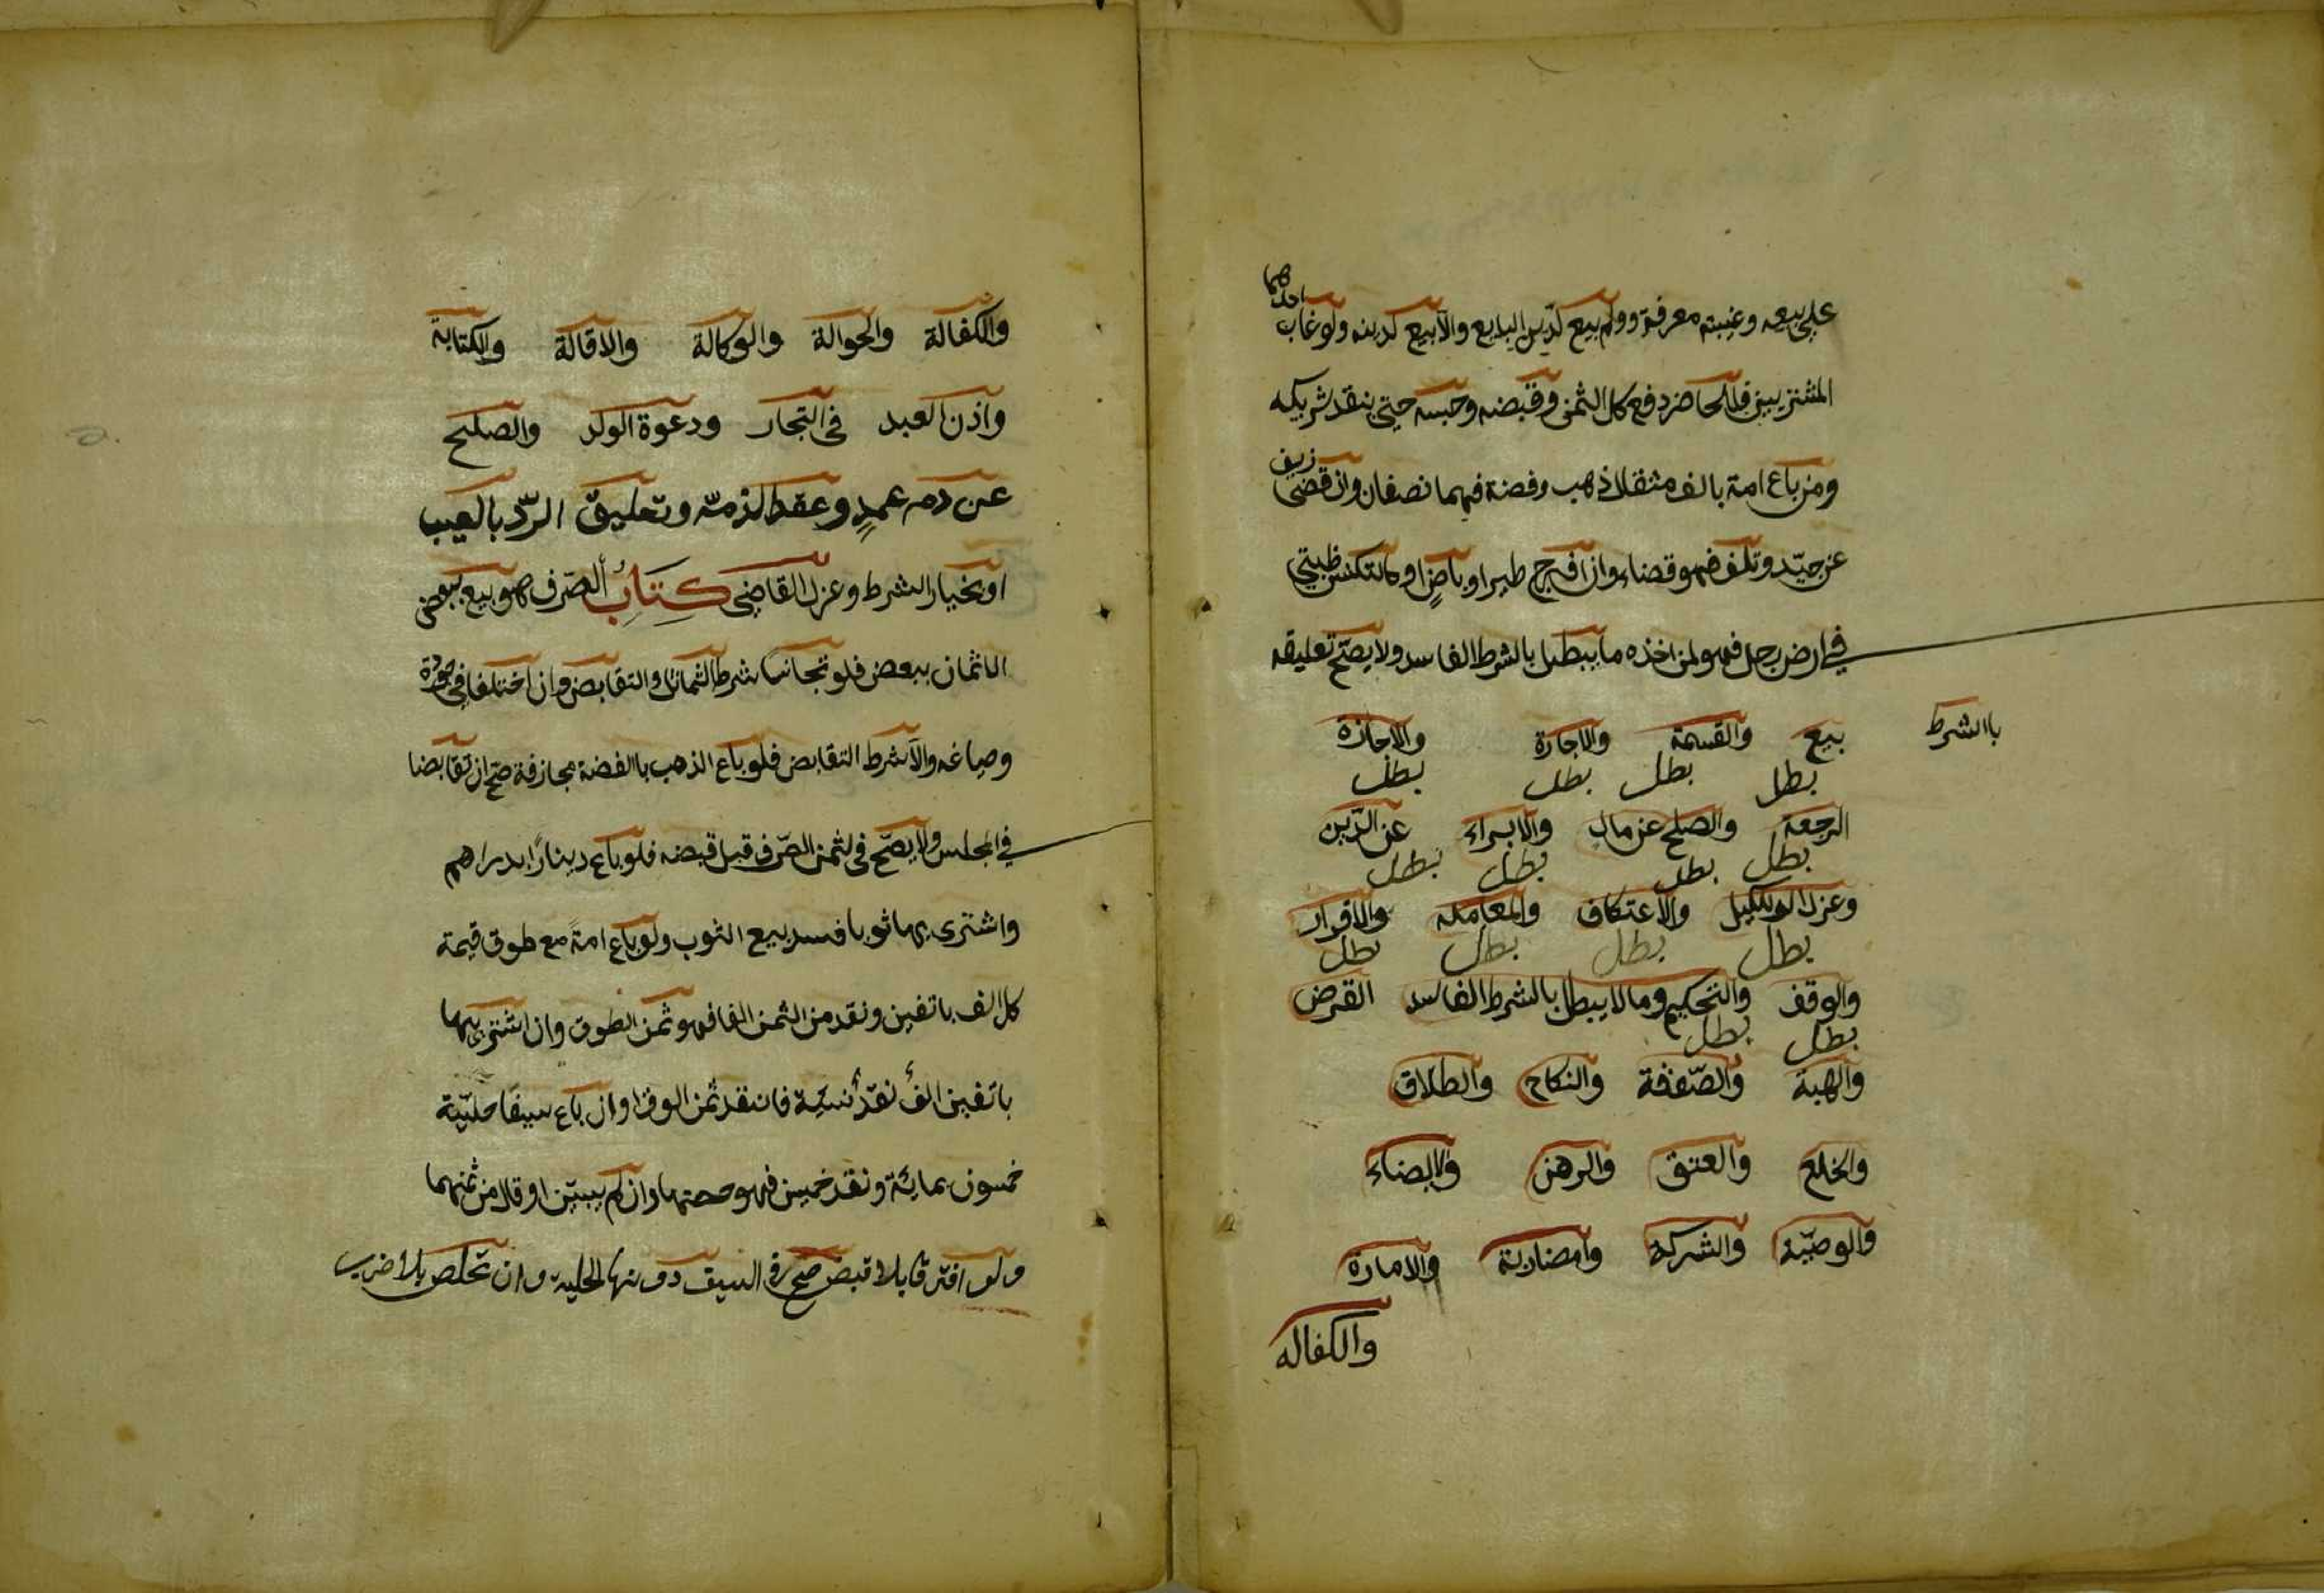 على بيعه وغيبته معرفة ولم بيع لدين البايع والا بيع لدينه ولو غاب احدهما
المشتريين فللحاضر دفع كل الثمن وقبضه وحبسه حتى ينقد شريكه
ومن باع امة بالف مثقال ذهب وفضة فهما نصفان وان قضى زيف
عن جيد وتلف فهو قضاء وان افرج طير او باض او تكنس ظبي
في ارض رجل فهو لمن اخذه ما يبطل بالشرط الفاسد ولا يصح تعليقه
باالشرط
بيع والقسمة والاجارة والاجازة
بطل بطل بطل بطل
الرجعة والصلح عن مال والابراء عن الدين
بطل بطل بطل بطل
وعزل الوكيل والاعتكاف والمعاملة والاقرار
بطل بطل بطل بطل
والوقف والتحكيم وما لا يبطل بالشرط الفاسد القرض
بطل بطل
والهبة والصدقة والنكاح والطلاق
والخلع والعتق والرهن والايصاء
والوصية والشركة والمضاربة والامارة
والكفاله
والكفالة والحوالة والوكالة والاقالة والكتابة
واذن العبد في التجار ودعوة الولد والصلح
عن دم عمدٍ وعقد الذمة وتعليق الردّ بالعيب
او بخيار الشرط وعزل القاضي كِتَابُ الصّرف هو بيع بعض
الاثمان ببعض فلو تجانسا شرط التماثل والتقابض وان اختلفا في جودة
وصياغه والا شرط التقابض فلو باع الذهب باالفضة مجازفة صح ان تقابضا
في المجلس ولا يصح في ثمن الصّرف قبل قبضه فلو باع دينارًا بدراهم
واشترى بها ثوبا فسد بيع الثوب ولو باع امةً مع طوق قيمة
كل الف بالفين ونقد من الثمن الفا فهو ثمن الطوق وان اشتريها
بالفين الف نقد نسيّة فالنقد ثمن الوق وان باع سيفا حليّة
خمسون بمائة ونقد خمسين فهو حصتها وان لم يبيّن او قال من ثمنهما
ولو افترقا بلا قبض صح في السيف دونها لحليه وان تخلص بلا ضرب